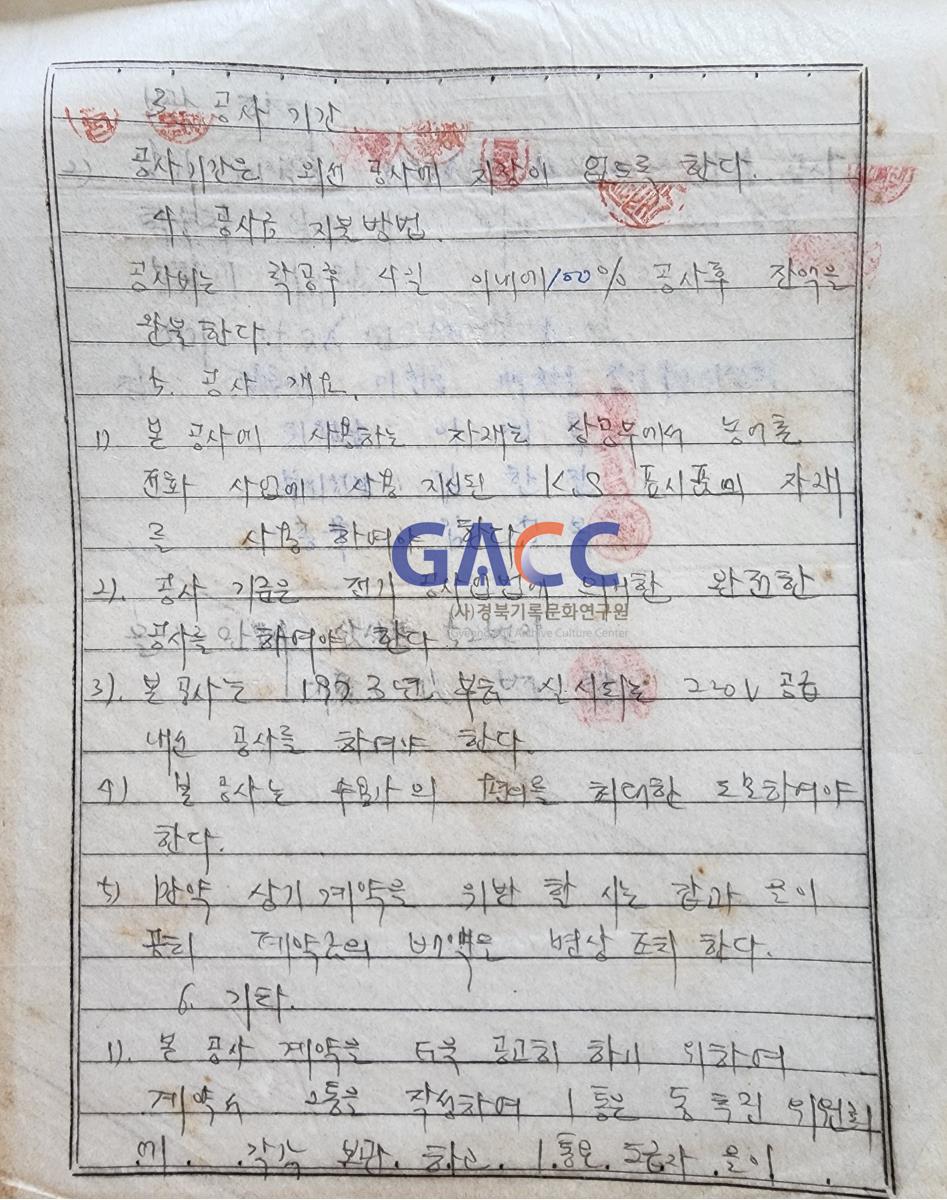 3. 공사 기간
공사기간은 외선 공사에 지장이 없도록 한다.
4. 공사금 지불방법.
공사비는 착공후 4일 이내에 100% 공사후 잔액을
완불한다.
5. 공사 개요.
1) 본 공사에 사용하는 자재는 상공부에서 농어촌
전화 사업에 사용 지정된 K.S 표시품의 자재
를 사용 하여야 한다.
GACC
(사)경북기록문화연구원
Gyeongbuk Archive Culture Center
2). 공사 기금은 전기 공사업법에 의거한 완전한
공사를 하여야 한다
3). 본 공사는 1973년 부터 실시되는 220V 공급
내선 공사를 하여야 한다.
4) 본 공사는 수용가의 편의를 최대한 도모하여야
한다.
5) 만약 상기 계약을 위반 할 시는 갑과 을이
계약금의 배액을 변상 조치 한다.
6. 기타.
1). 본 공사 계약을 더욱 공고히 하기 위하여
계약서 2통을 작성하여 1통은 동 추진 위원회
에. 각각 보관. 하고. 1.통은. 도급자 .을이